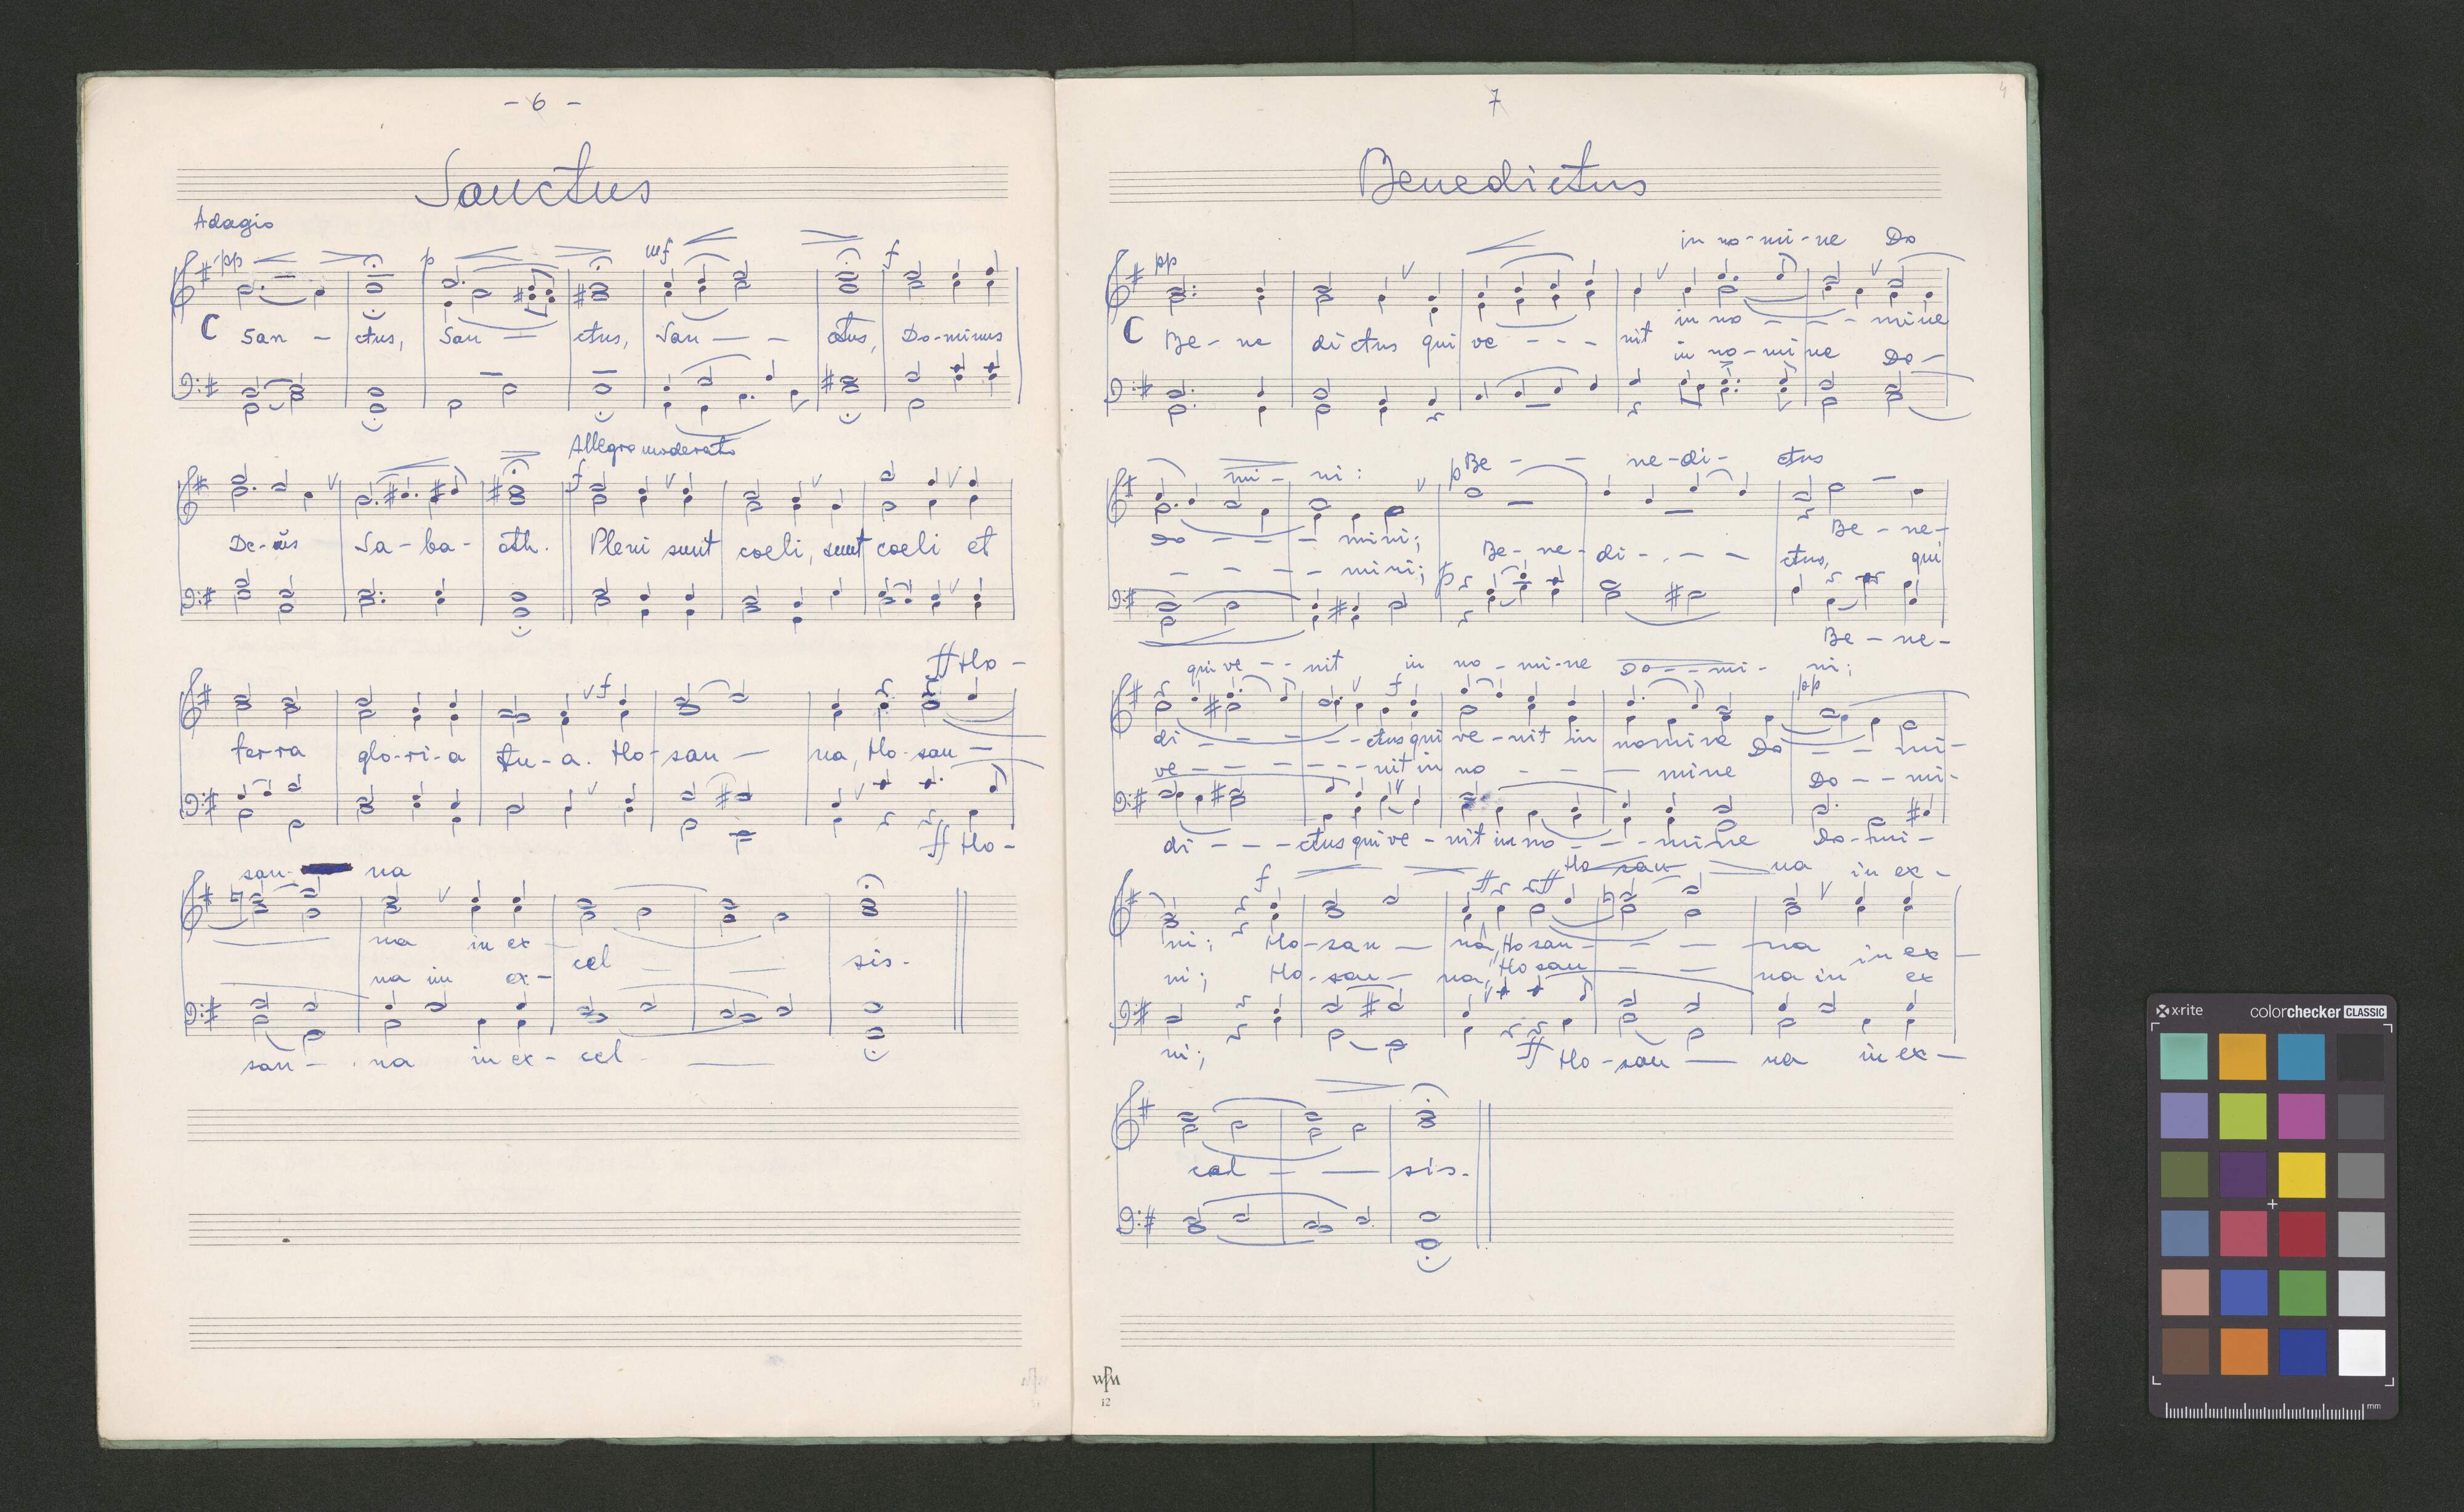 - 6 -
Sanctus
Adagio
pp p mf f
C San - ctus, San - ctus, San - - ctus, Do-minus
Allegro moderato
f
De-us Sa-ba- oth. Pleni sunt coeli, sunt coeli et
ff Ho-
f
terra glo-ri-a tu-a. Ho-san - na, Ho-san -
ff Ho-
san- na
na in ex - cel - - sis.
na in ex-
san - na in ex- cel - -
7
4
Benedictus
in no-mi-ne Do
pp
in no - - - mine
C Be - ne dictus qui ve - - - nit in no-mi ne Do-
mi- ni: p Be - - ne-di- ctus
Do - - - - mini; Be - ne-
- - - - mini; p Be-ne-di - - - ctus, qui
Be - ne-
qui ve - - nit in no-mi-ne Do - - mi- ni;
f pp
di - - - - - ctus qui ve-nit in nomine Do - - mi-
ve - - - - - - - nit in no - - - mine Do - - mi-
di - - - ctus qui ve - nit in no - - - mine Do-mi-
f ff ff Ho san - na in ex -
ni; Ho-san - na, Ho san- - - na in ex -
ni; Ho-san - na, Ho san - - na in ex
ni; ff Ho-san - na in ex -
cel - - sis.
WPM
12
x-rite colorchecker CLASSIC
mm